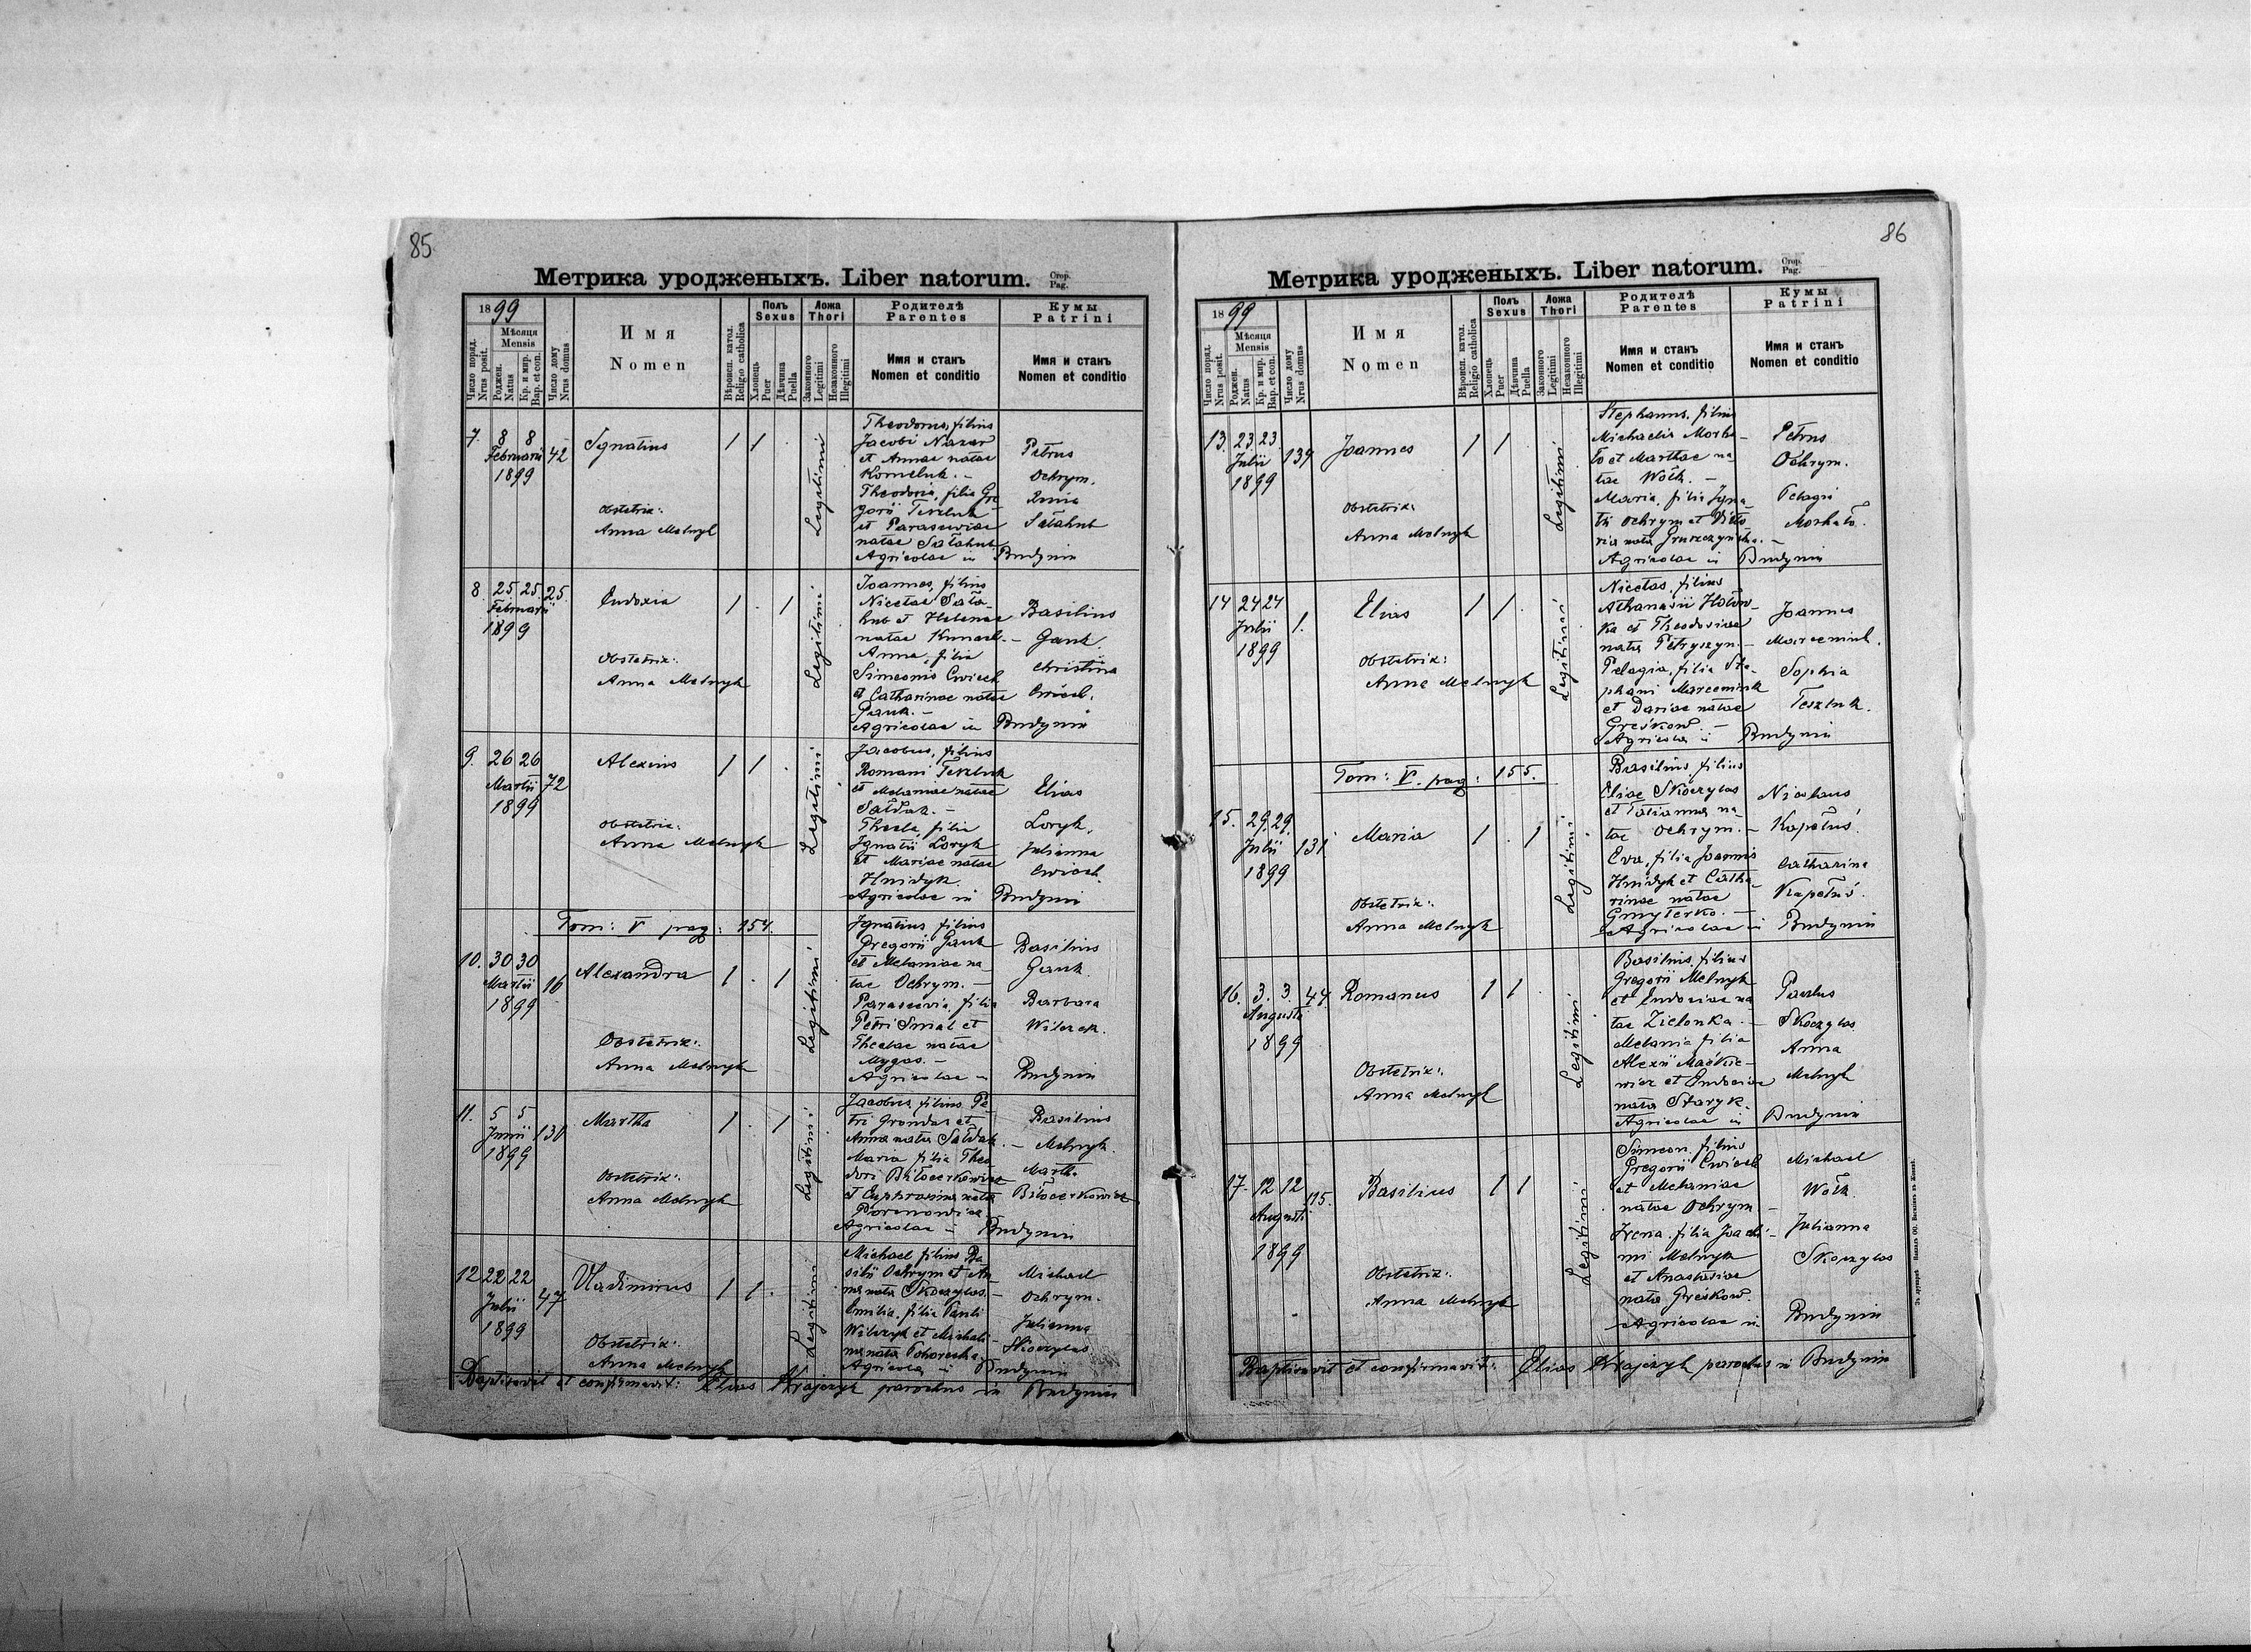 85
Метрика уродженыхъ. Liber natorum.
Стор.
Pag.
1899
Число поряд.
Nrus posit.
Мѣсяця
Mensis
Роджен.
Natus
Кр. и мир.
Bap. et con.
Число дому
Nrus domus
Имя
Nomen
Вѣроисп. катол.
Religio catholica
Полъ
Sexus
Хлопець
Puer
Дѣвчина
Puella
Ложа
Thori
Законного
Legitimi
Незаконного
Illegitimi
Родителѣ
Parentes
Имя и станъ
Nomen et conditio
Кумы
Patrini
Имя и станъ
Nomen et conditio
7. 8 8 Februarii 1899 42
Ignatius
1 1 .
Legitimi
Obstetrix:
Anna Melnyk
Theodorus, filius
Jacobi Nazar
et Annae natae
Korneluk. –
Theodoria, filia Gre
gorii Teszluk
et Parasceviae
natae Sałahub
Agricolae in Budynin
Petrus
Ochrym.
Sałahub
8. 25 25 Februarii 1899 25.
Eudoxia
1 . 1
Legitimi
Obstetrix:
Anna Melnyk
Joannes, filius
Nicetae Sała-
hub et Helenae
natae
Anna, filia
Simeonis Cwioch
et Catharinae natae
Gauk. –
Agricolae in Budynin
Basilius
Gauk.
Christina
Cwioch.
9. 26 26 Martii 1899 72
Alexius
1 1 .
Legitimi
Obstetrix:
Anna Melnyk
Jacobus, filius
Romani Teszluk
et Melaniae natae
Sałdak. –
Thecla, filia
Ignatii Loryk
et Mariae natae
Hnidyk.
Agricolae in Budynin
Elias
Loryk.
Julianna
Cwioch.
Tom: V pag: 154.
10. 30 30 Martii 1899 16
Alexandra
1 . 1
Legitimi
Obstetrix:
Anna Melnyk
Ignatius, filius
Gregorii Gauk
et Melaniae na
tae Ochrym. –
Parascevia, filia
Petri Smal et
Theclae natae
Mygas. –
Agricolae in Budynin
Basilius
Gauk.
Barbara
Wilczek.
11. 5 5 Junii 1899 130
Martha
1 . 1
Legitimi
Obstetrix:
Anna Melnyk
Jacobus, filius Pe
tri Grondas et
Anna nata Sałdak. –
Maria filia Theo
dori Biłocerkowicz
et Euphrosina nata
Agricolae in Budynin
Basilius
Melnyk.
Martha
Biłocerkowicz
12 22 22 Julii 1899 47
Vladimirus
1 1 .
Legitimi
Obstetrix:
Anna Melnyk
Michael filius Ba
silii Ochrym et An
na nata Skoczylas. –
Emilia, filia Pauli
Wilczyk et Michali
na nata Pohorecka.
Agricolae in Budynin
Michael
Ochrym.
Julianna
Skoczylas
Baptisavit et confirmavit: Elias Krajczyk parochus in Budynin
86
Метрика уродженыхъ. Liber natorum.
Стор.
Pag.
1899
Число поряд.
Nrus posit.
Мѣсяця
Mensis
Роджен.
Natus
Кр. и мир.
Bap. et con.
Число дому
Nrus domus
Имя
Nomen
Вѣроисп. катол.
Religio catholica
Полъ
Sexus
Хлопець
Puer
Дѣвчина
Puella
Ложа
Thori
Законного
Legitimi
Незаконного
Illegitimi
Родителѣ
Parentes
Имя и станъ
Nomen et conditio
Кумы
Patrini
Имя и станъ
Nomen et conditio
13. 23 23 Julii 1899 139
Joannes
1 1 .
Legitimi
Obstetrix:
Anna Melnyk
Stephanus, filius
Michaelis Morha-
ło et Marthae na
tae Wołk. –
Maria, filia Igna
tii Ochrym et Victo
ria nata Gruszczynska. –
Agricolae in Budynin
Petrus
Ochrym.
Pelagia
Morhało.
14 24 24 Julii 1899 1.
Elias
1 1 .
Legitimi
Obstetrix:
Anna Melnyk
Nicetas, filius
Athanasii Hołow-
ka et Theodosiae
nata Petryszyn. –
Pelagia, filia Ste-
phani Marceniuk
et Dariae natae
Greśkow. –
Agricolae in Budynin
Joannes
Marceniuk.
Sophia
Teszluk.
Tom: V. pag: 155.
15. 29. 29. Julii 1899 131
Maria
1 . 1
Legitimi
Obstetrix:
Anna Melnyk
Basilius, filius
Eliae Skoczylas
et Tatianna na
tae Ochrym. –
Eva, filia Joannis
Hnidyk et Catha
rinae natae
Gmyterko. –
Agricolae in Budynin
Nicolaus
Kapeluś.
Catharina
Kapeluś.
16. 3. 3. Augusti 1899 44.
Romanus
1 1 .
Legitimi
Obstetrix:
Anna Melnyk
Basilius, filius
Gregorii Melnyk
et Eudoxiae na
tae Zielonka. –
Melania filia
Alexii Maśkie-
wicz et Eudoxiae
nata Staryk.
Agricolae in Budynin
Paulus
Skoczylas.
Anna
Melnyk
17. 12 12 Augusti 1899 115.
Basilius
1 1
Legitimi
Obstetrix:
Anna Melnyk
Simeon, filius
Gregorii Cwioch
et Melaniae
natae Ochrym –
Irena, filia Joachi-
mi Melnyk
et Anastasiae
nata Greskow.
Agricolae in Budynin
Michael
Wołk.
Julianna
Skoczylas
Baptisavit et confirmavit: Elias Krajczyk parochus in Budynin